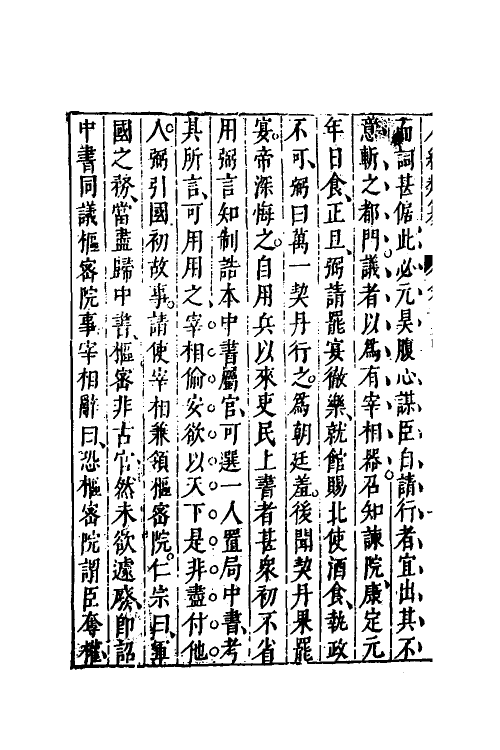 而詞甚倨此必元昊腹心謀臣自請行者宜出其不
意斬之都門議者以為有宰相器召知諫院康定元
年日食正旦弼請罷宴徹樂就館賜北使酒食執政
不可弼曰萬一契丹行之為朝廷羞後聞契丹果罷
宴帝深悔之自用兵以來吏民上書者甚衆初不省
用弼言知制誥本中書屬官可選一人置局中書考
其所言可用用之宰相偷安欲以天下是非盡付他
人弼引國初故事請使宰相兼領樞密院仁宗曰軍
國之務當盡歸中書樞密非古官然未欲遽廢即詔
中書同議樞密院事宰相辭曰恐樞密院謂臣奪權